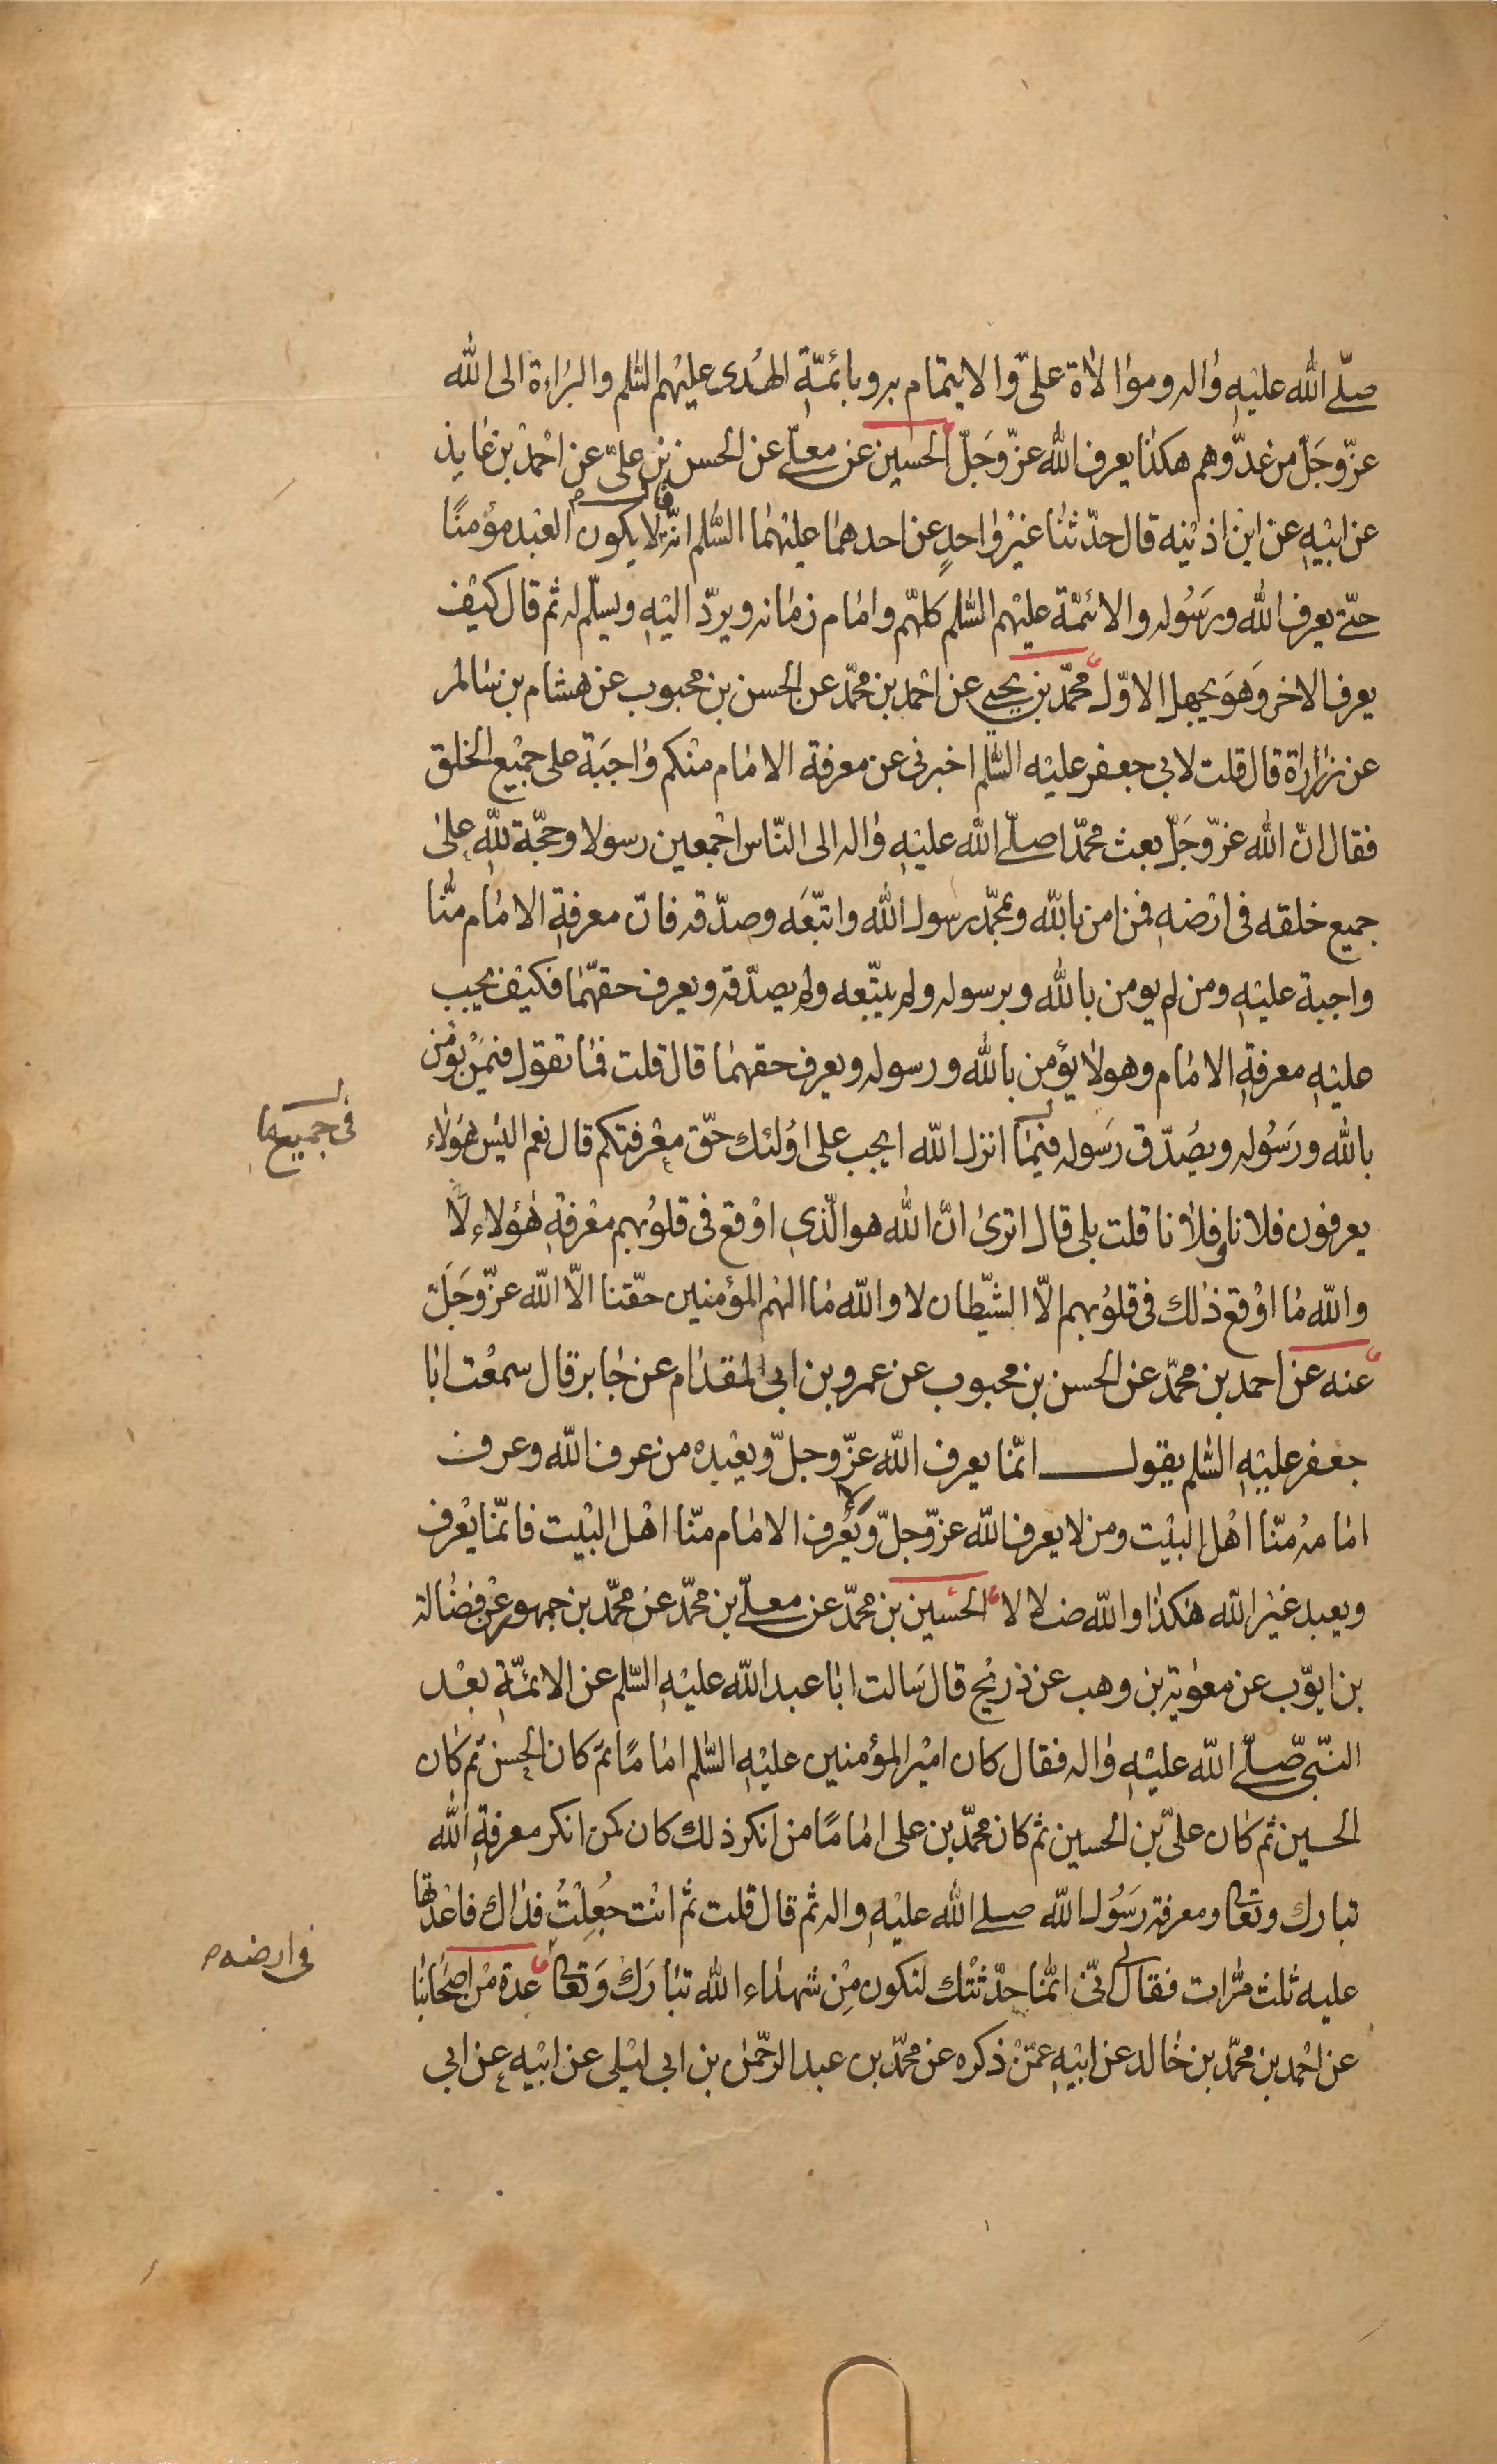 صلّى الله عليه واله وموالاة علىّ والايتمام به وبائمّة الهُدى عليهم السّلم والبراءة الى الله
عزّ وجَلّ من عدّوهم هكذا يعرف الله عزّ وجَلّ الحسين عن معلّى عن الحسن بن علىّ عن احمد بن عايذ
عن ابيه عن ابن اذينه قال حدّثنا غير واحدٍ عن احدهما عليهما السّلم انّه قال لا يكون العبد مؤمنًا
حتّى يعرف الله ورسُوله والائمّة عليهم السّلم كلهّم وامام زمانه ويردّ اليه ويسلّم له ثم قال كيف
يعرف الاخر وهَو يجهل الاوّل محمّد بن يحيى عن احمد بن محمّد عن الحسن بن محبوب عن هشام بن سالم
عن زرارة قال قلت لابي جعفر عليه السّلم اخبرنى عن معرفة الامام منكم واجبَة على جميع الخلق
فقال انّ الله عزّ وجَلّ بعث محمّدا صلّى الله عليه واله الى النّاس اجمعين رسولا وحجّة لله على
جميع خلقه فى ارضه فمن امن بالله وبمحمّد رسول الله واتبّعَه وصدّقه فانّ معرفة الامام منّا
واجبة عليه ومن لم يومن بالله وبرسوله ولم يتبّعه ولم يصدّقه ويعرف حقهّما فكيف يجب
عليه معرفة الامام وهو لا يؤمن بالله ورسوله ويعرف حقهما قال قلت فما تقول فيمَن يؤمن
بالله ورسُوله ويصُدّق رَسوله فيما انزل الله ايجب على اوُلئك حقّ معرفتكم قال نعم اليس هَولاء
فى جميع ما
يعرفون فلانا وفلانا قلت بلى قال اترى انّ الله هو الّذي اوقع فى قلوُبهم معرفة هؤلاء لا
والله ما اوقع ذلك فى قلوُبهم الّا الشّيطان لا والله ما الهم المؤمنين حقّنا الّا الله عزّ وجَلّ
عنه عن احمد بن محمّد عن الحسن بن محبوب عن عمرو بن ابى المقدام عن جابر قال سمعت ابا
جعفر عليه السّلم يقول انّما يعرف الله عزّ وجلّ ويعبده من عرف الله وعرف
امامه منّا اهل البيت ومن لا يعرف الله عزّ وجلّ ولا يعُرف الامام منّا اهل البيت فانّما يعرف
ويعبد غير الله هكذا والله ضلالا الحسين بن محمّد عن معلّى بن محمّد عن محمّد بن جمهور عن فضالة
بن ايوّب عن معوية بن وهب عن ذريح قال سَالت ابا عبد الله عليه السّلم عن الائمّة بعد
النبّى صلّى الله عليه واله فقال كان امير المؤمنين عليه السّلم امامًا ثم كان الحسن ثم كان
الحسين ثم كان علىّ بن الحسين ثم كان محمّد بن على امامًا من انكر ذلك كان كمن انكر معرفة الله
تبارك وتعالى ومعرفة رسُول الله صلى الله عليه واله ثم قال قلت ثم انت جُعِلْتُ فداك فاعدتها
عليه ثلث مّرات فقال لى انّى انمّا حدّثتك لتكون مِن شهداء الله تبارَك وَتعالى عدة من اصحابنا
فى ارضه
عن احمد بن محمّد بن خالد عن ابيه عمّن ذكره عن محمّد بن عبد الرحمّن بن ابى ليلى عن ابيه عن ابى